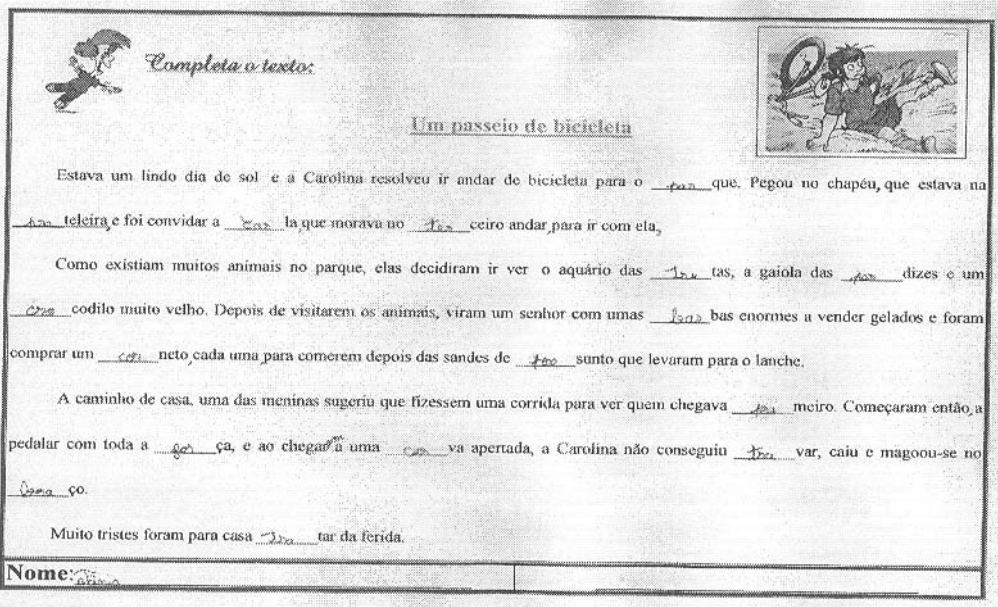 Completa o texto:
Um passeio de bicicleta
Estava um lindo dia de sol e a Carolina resolveu ir andar de bicicleta para o par que. Pegou no chapéu, que estava na
pra teleira, e foi convidar a Car la, que morava no ter ceiro andar, para ir com ela,
Como existiam muitos animais no parque, elas decidiram ir ver o aquário das tru tas, a gaiola das per dizes e um
cro codilo muito velho. Depois de visitarem os animais, viram um senhor com umas bar bas enormes a vender gelados e foram
comprar um cor neto, cada uma para comerem depois das sandes de pre sunto que levaram para o lanche.
A caminho de casa, uma das meninas sugeriu que fizessem uma corrida para ver quem chegava pri meiro. Começaram então, a
pedalar com toda a for ça, e ao chegarem a uma cur va apertada, a Carolina não conseguiu tra var, caiu e magoou-se no
bra ço.
Muito tristes foram para casa tra tar da ferida.
Nome: